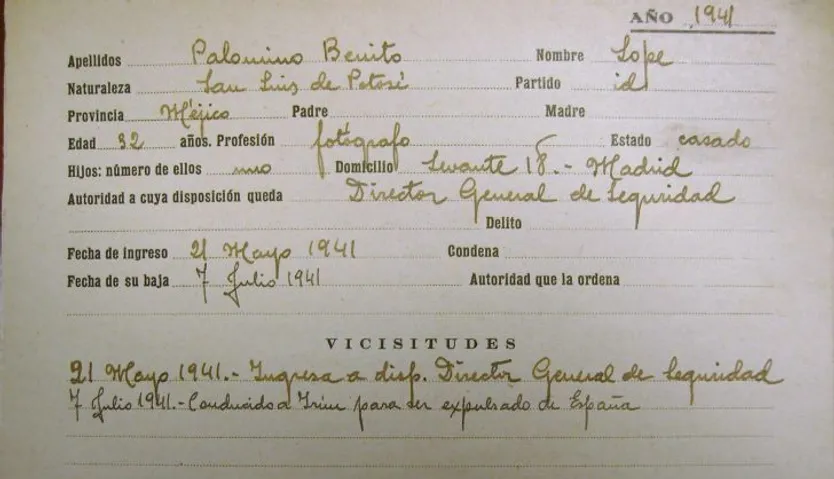 AÑO 1941
Apellidos Palomino Benito Nombre Lope
Naturaleza San Luis de Potosí Partido id
Provincia Méjico Padre Madre
Edad 32 años. Profesión fotógrafo Estado casado
Hijos: número de ellos uno Domicilio Levante 18.- Madrid
Autoridad a cuya disposición queda Director General de Seguridad
Delito
Fecha de ingreso 21 Mayo 1941 Condena
Fecha de su baja 7 Julio 1941 Autoridad que la ordena
VICISITUDES
21 Mayo 1941.- Ingresa a disp. Director General de Seguridad
7 Julio 1941.- Conducido a Irún para ser expulsado de España